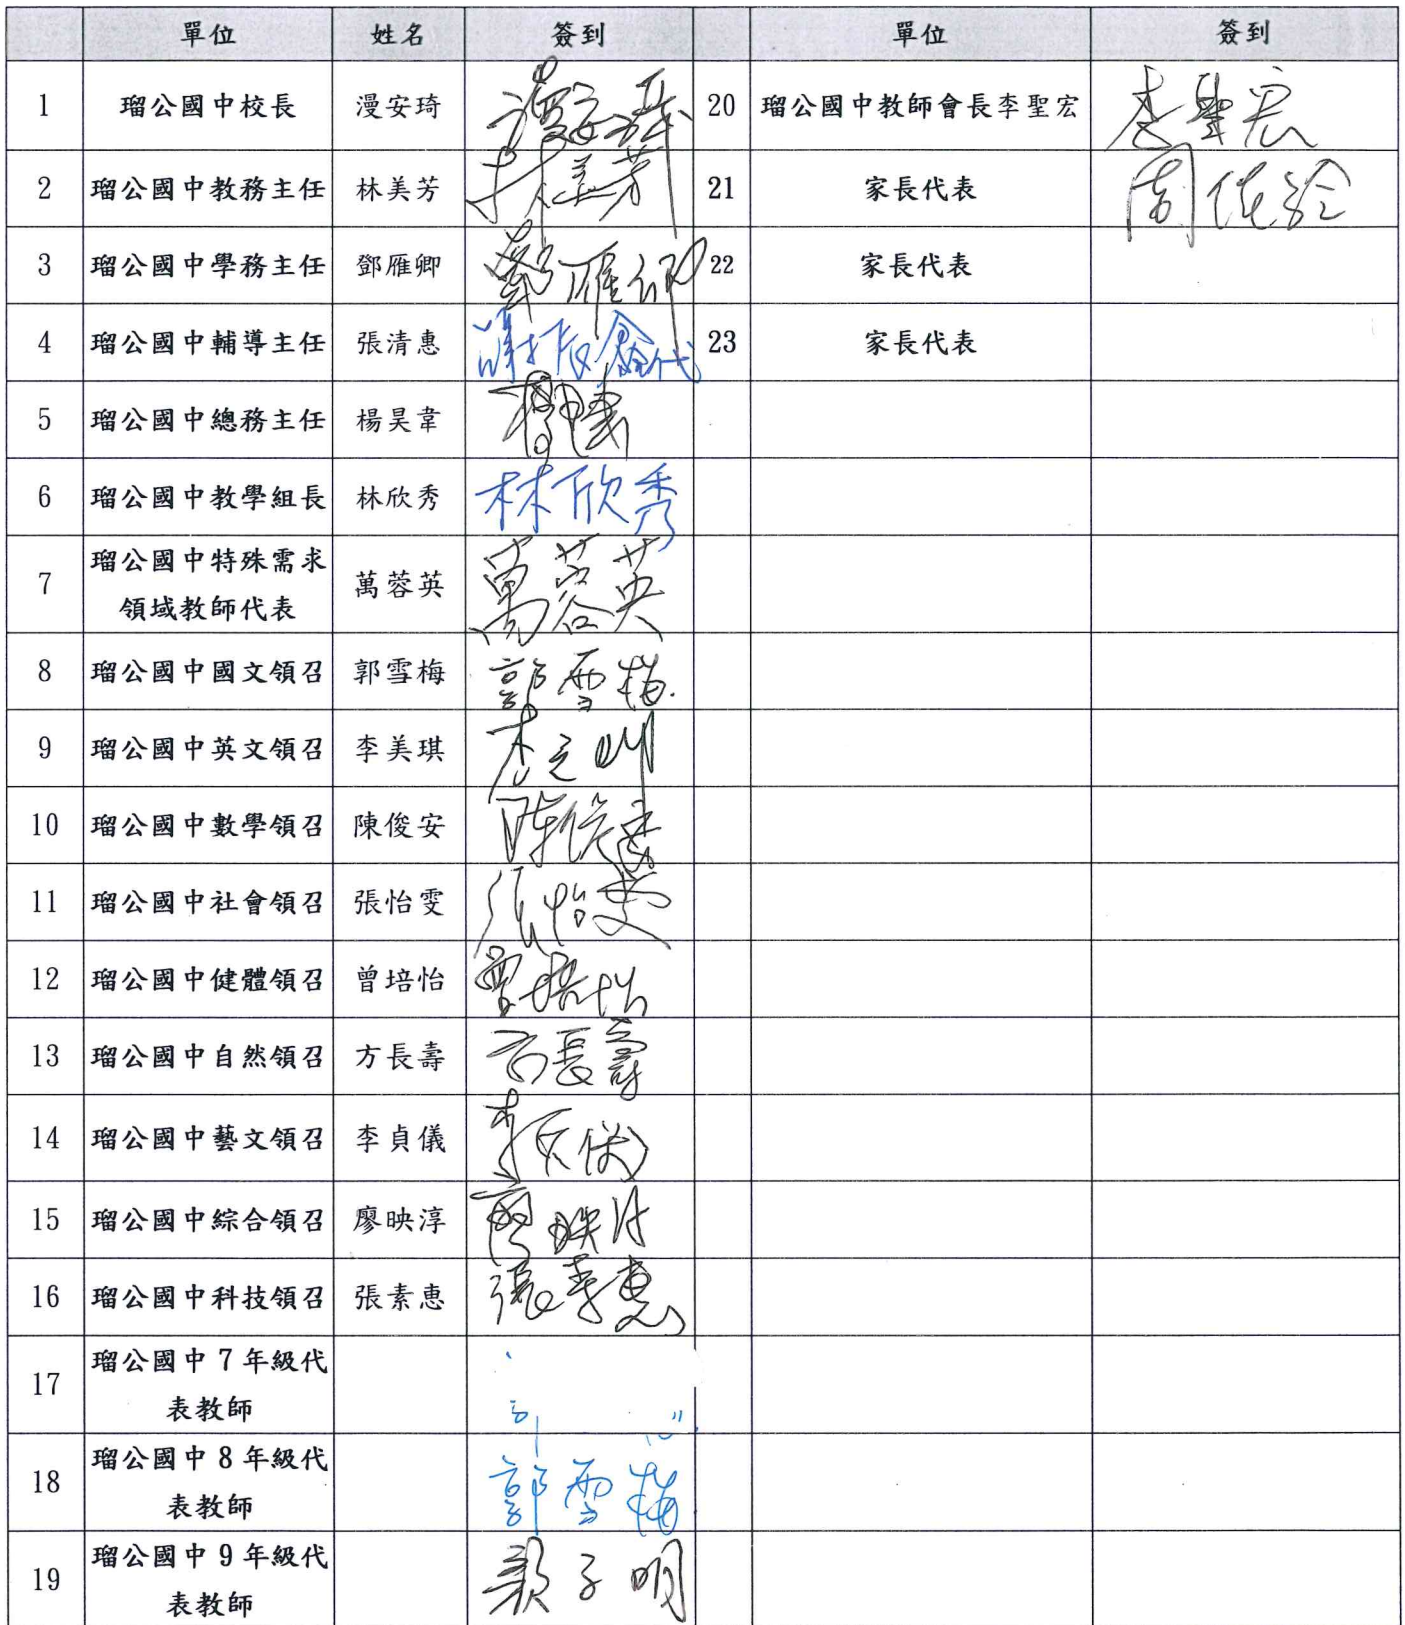 單位 姓名 簽到 單位 簽到
1 瑠公國中校長 漫安琦 20 瑠公國中教師會長李聖宏 李聖宏
2 瑠公國中教務主任 林美芳 林美芳 21 家長代表
3 瑠公國中學務主任 鄧雁卿 鄧雁卿 22 家長代表
4 瑠公國中輔導主任 張清惠 代 23 家長代表
5 瑠公國中總務主任 楊昊韋
6 瑠公國中教學組長 林欣秀 林欣秀
7 瑠公國中特殊需求
領域教師代表 萬蓉英 萬蓉英
8 瑠公國中國文領召 郭雪梅 郭雪梅
9 瑠公國中英文領召 李美琪
10 瑠公國中數學領召 陳俊安 陳俊安
11 瑠公國中社會領召 張怡雯 張怡雯
12 瑠公國中健體領召 曾培怡 曾培怡
13 瑠公國中自然領召 方長壽 方長壽
14 瑠公國中藝文領召 李貞儀 李貞儀
15 瑠公國中綜合領召 廖映淳 廖映淳
16 瑠公國中科技領召 張素惠 張素惠
17 瑠公國中 7 年級代
表教師
18 瑠公國中 8 年級代
表教師 郭雪梅
19 瑠公國中 9 年級代
表教師 子明